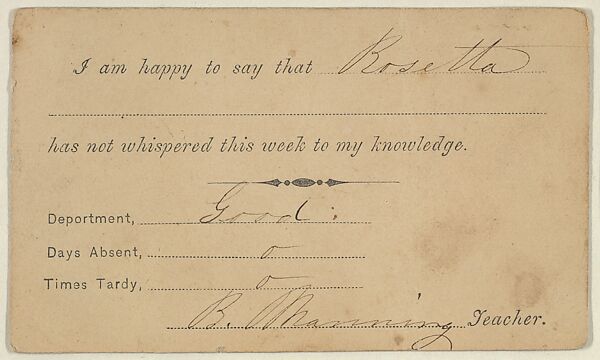 I am happy to say that Rosetta
has not whispered this week to my knowledge.
Department, Good:
Days Absent, 0
Times Tardy, 0
B. Manning Teacher.